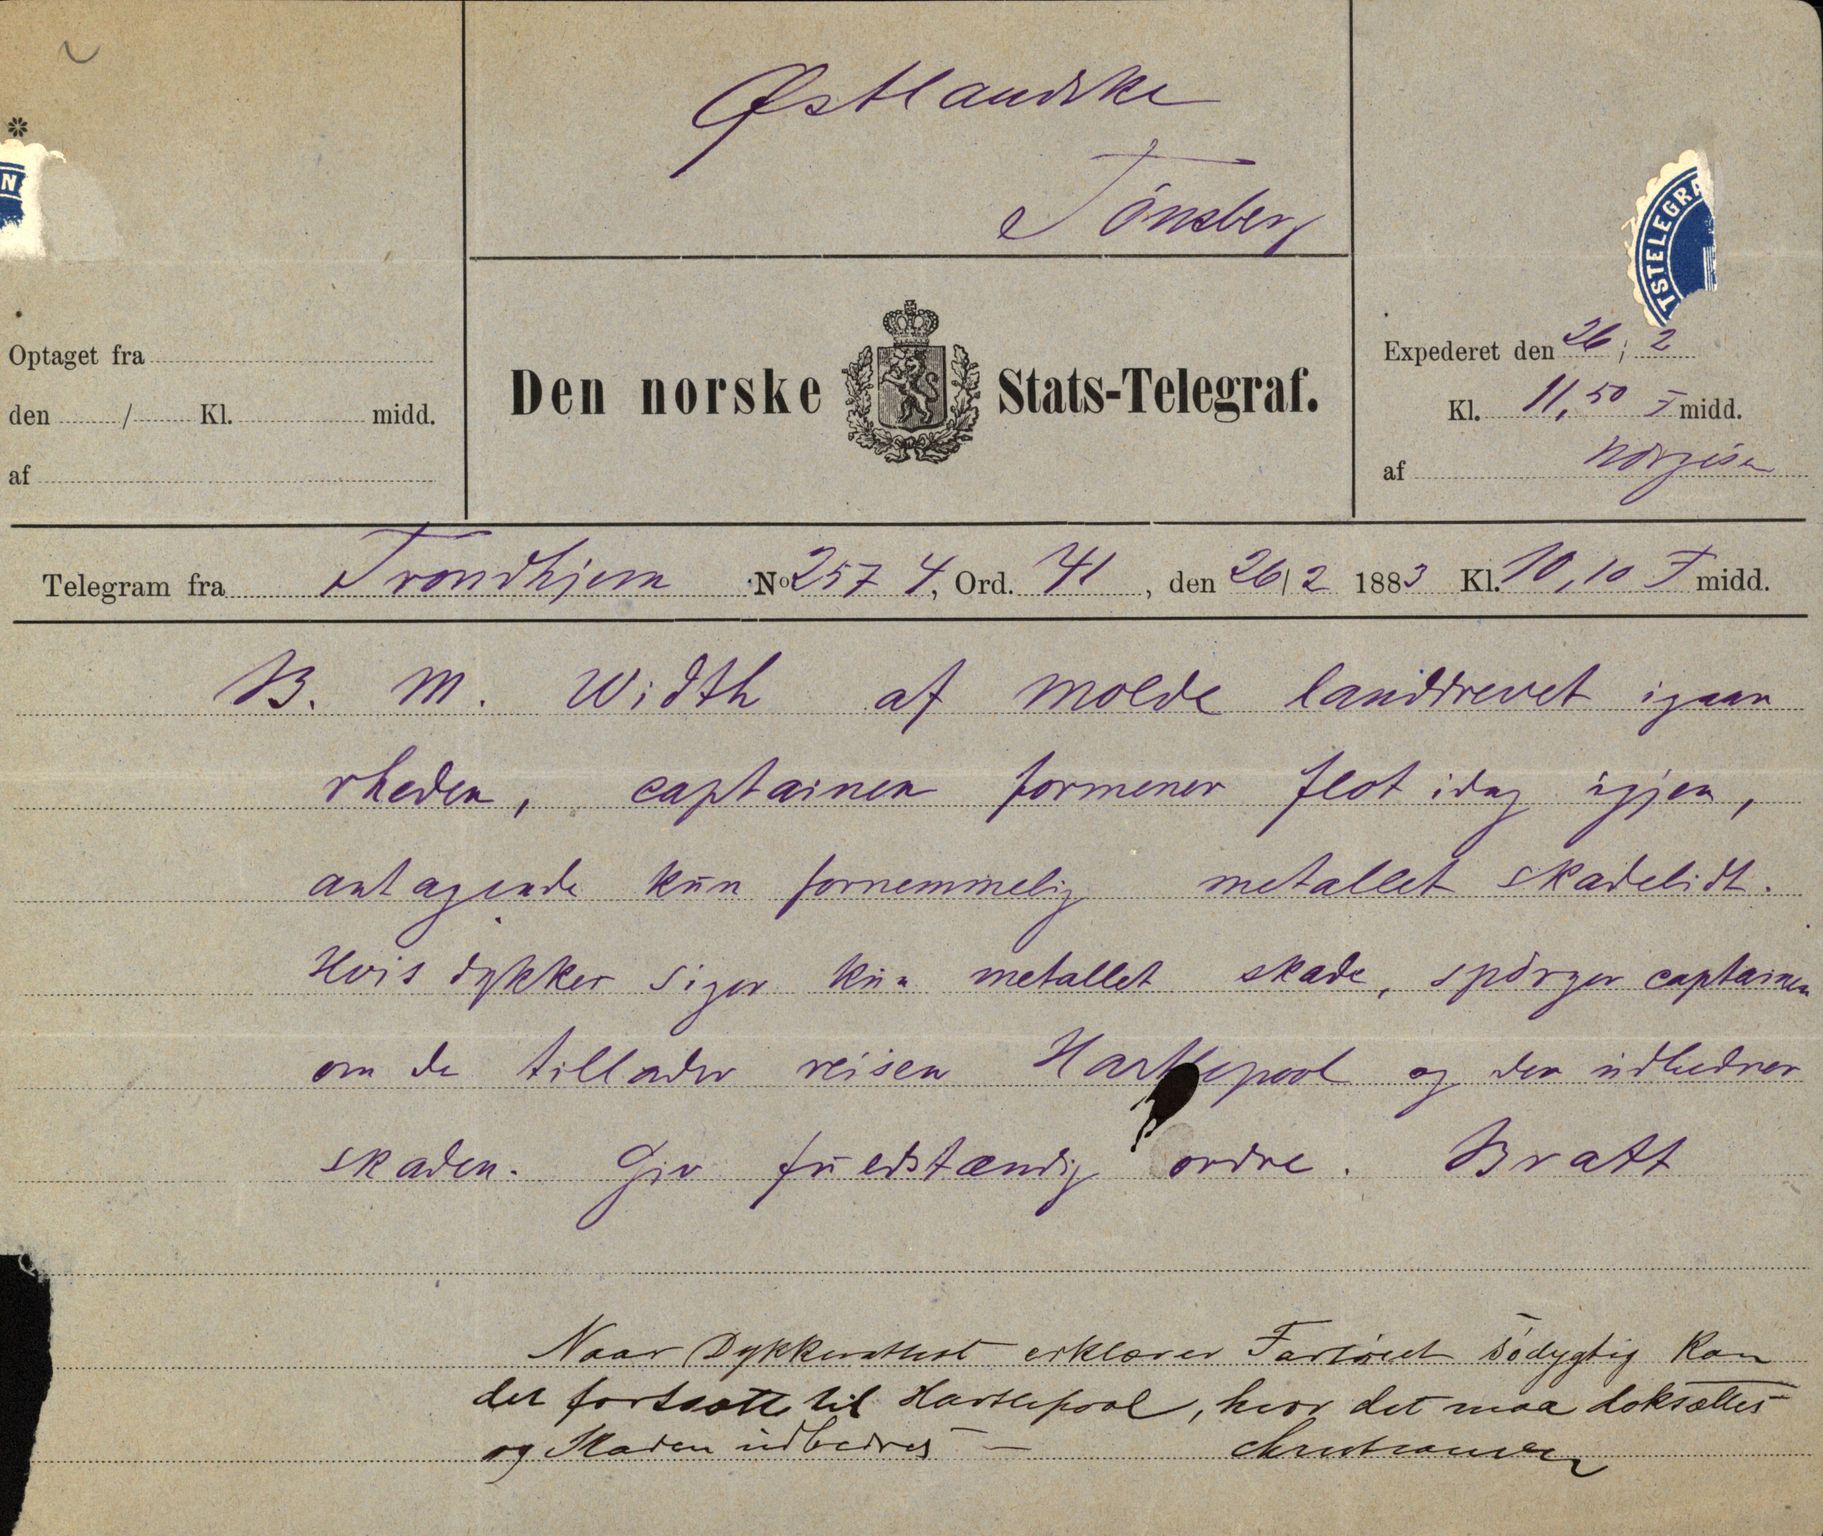 Østlandske
Tönsberg
N
TSTELEGRA
Optaget fra
den / Kl. midd.
af
Den norske Stats-Telegraf.
Expederet den 26/2
Kl. 11,50 F midd.
af
Telegram fra Trondhjem No 257 4, Ord. 41, den 26/2 1883 Kl. 10,10 F midd.
B. M. Width af Molde landdrevet igaar
rheden, captainen formener flot idag igjen,
antagende kun fornemmelig metallet skadelidt.
Hvis dykker siger kun metallet skade, spörger captainen
om de tillader reisen Hartlepool og der udbedrer
skaden. Giv fuldstændig ordre. Bratt
Naar Dykkerattest erklærer Fartöiet södygtig kan
det fortsætte til Hartlepool, hvor det maa doksættes
og Skaden udbedres — Christiansen